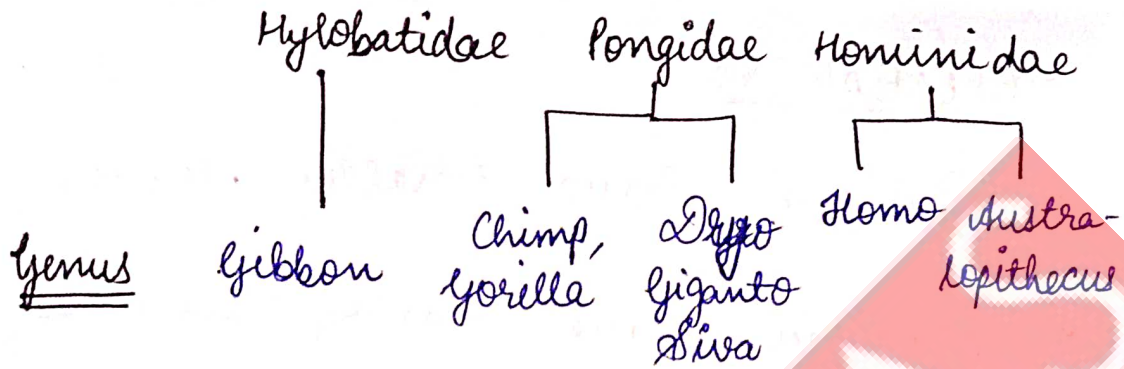 Hylobatidae Pongidae Hominidae
Genus Gibbon Chimp, Gorilla Dryo Giganto Siva Homo Austra-lopithecus